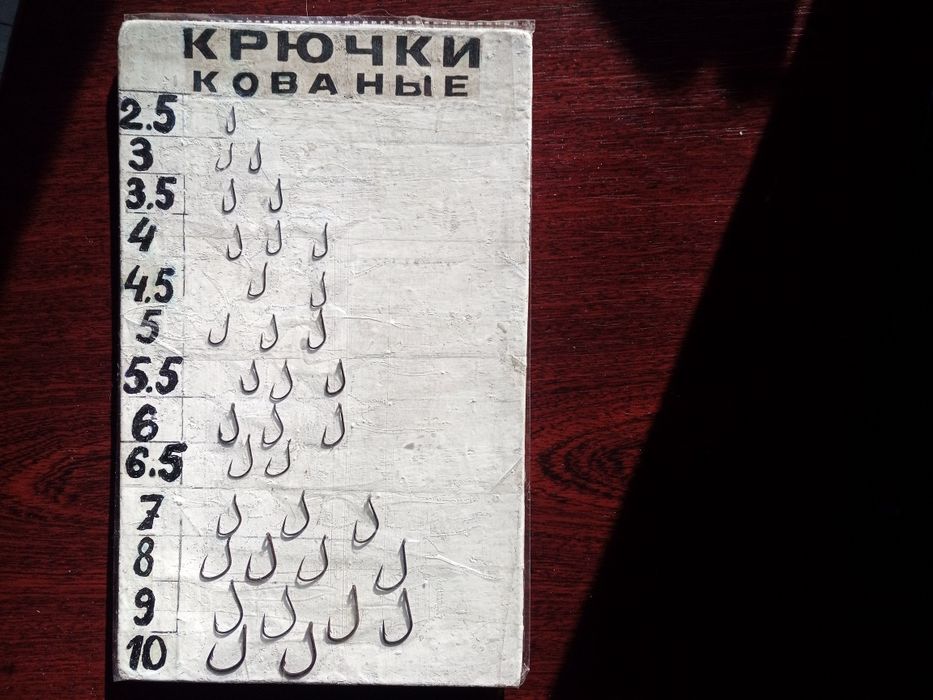 КРЮЧКИ
КОВАНЫЕ
2.5
3
3.5
4
4.5
5
5.5
6
6.5
7
8
9
10